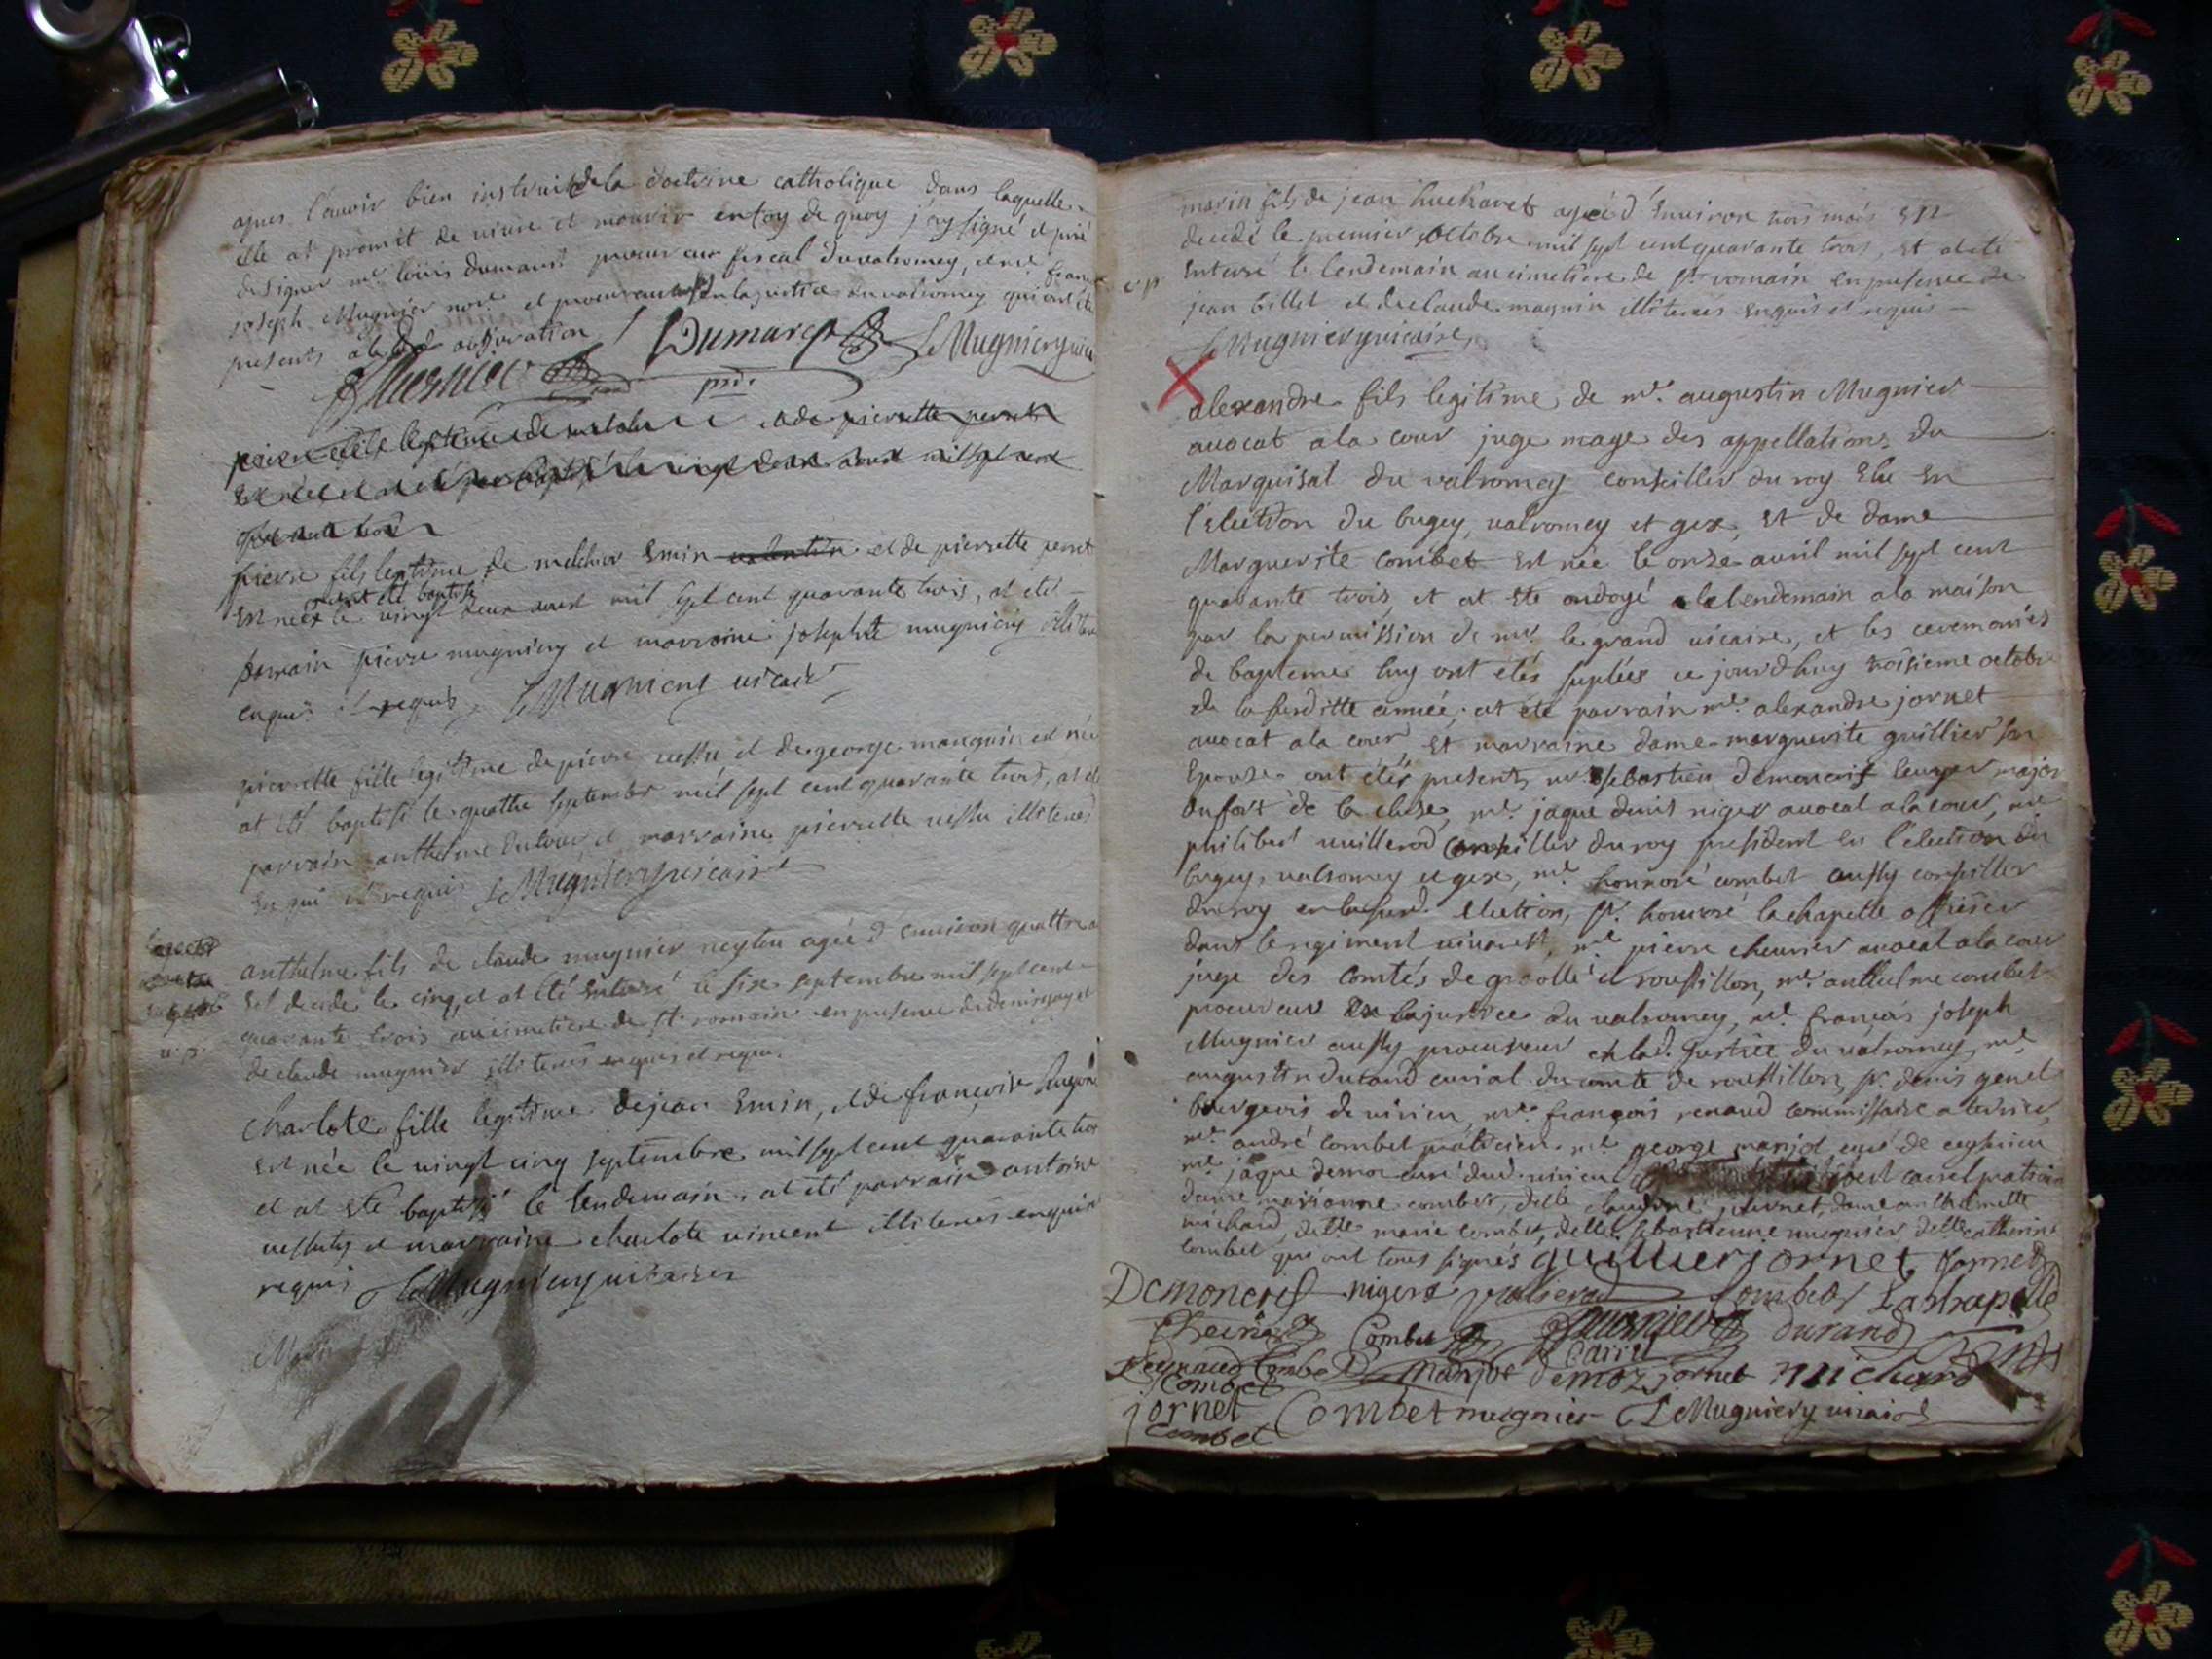 apres l'avoir bien instruit de la doctrine catholique dans laquelle
elle at promit de vivre et mourir en foy de quoy j'ay signé et prié
de signer mr. loüis dumarest procureur fiscal du valromey, et mr. francois
joseph Mugnier nore. et procureur en la justice du valromey qui ont été
presents a lad. abjuration
Dumarest LeMugniery vicaire
JMugnier
pierre fils legitime de et de pierrette perret
est né et at été baptisé le vingt deux aoust mil sept cent
quarante trois
pierre fils legitime de melchior Emin et de pierrette perret
et at été baptisé
Est née le vingt deux aoust mil sept cent quarante trois, at eté
parrain pierre mugniery et marraine josephte mugniery illiteres
enquis et requis LeMugniery vicaire
pierrette fille legitime de pierre vessu et de george manguin est née
at eté baptisé le quattre septembre mil sept cent quarante trois, at eté
parrain anthelme et marraine pierrette vessu illiteres
Enquis et requis LeMugniery vicaire
anthelme fils de claude mugnier neytou agée d'environ quattre
Est decedé le cinq, et at été Enterré le six septembre mil sept cent
quarante trois au cimetiere de st. romain en presence de
de claude mugnier illiteres enquis et requis.
charlote fille legitime de jean Emin, et de françoise
Est née le vingt cinq septembre mil sept cent quarante trois
et at Eté baptisé le lendemain, at eté parrain antoine
et marraine charlote vincent illiteres enquis
requis LeMugniery vicaire
marin fils de jean huchavet agéé d'Environ trois mois est
decedé le premier octobre mil sept cent quarante trois, et at eté
Enterré le lendemain au cimetiere de st. romain en presence de
jean billet et de claude magnin illiteres enquis et requis
LeMugniery vicaire
alexandre fils legitime de mr. augustin Mugnier
avocat a la cour juge mage des appellations du
Marquisat du valromey conseiller du roy Elu En
l'Election du bugey, valromey et gex, Et de dame
Marguerite combet est née le onze avril mil sept cent
quarante trois et at ete ondoyé le lendemain a la maison
par la permission de mr. le grand vicaire, et les ceremonies
de bapteme luy ont etés suplées ce jourd'huy troisieme octobre
de la susditte année; at été parrain mr. alexandre jornet
avocat a la cour, et marraine dame marguerite guillier son
Epouse ont étés presents mr. sebastien demoncrif major
du fort de la cluse, mr. jaque denis niger avocat a la cour, mr.
philibert vuillerod conseiller du roy president en l'election du
bugey, valromey et gex, mr. honnoré combet aussy conseiller
du roy en la susd. Election, sr. honnoré lachapelle officier
dans le regiment vivarest, mr. pierre cheurier avocat a la cour
juge des comtés de groslée et roussillon, mr. anthelme combet
procureur en la justice du valromey, mr. françois joseph
Mugnier aussy procureur en lad. justice du valromey, mr.
augustin durand curial du comté de roussillon, sr. denis genet
bourgeois de virieu, mr. françois renaud commissaire a terrier,
mr. andré combet praticien mr. george marjot curé de ceyzerieu
mr. jaque demoz curé dud. virieu carrel praticien
dame marianne combet, delle. claudine jornet, dame anthelmette
michard, delle. marie combet, delle. sebastienne mugnier, delle catherine
combet qui ont tous signés guillier jornet jornet
Demoncrif nigere vuilierod Combet Lachapelle
Cheurier Combet JMugnier durand Genet
Reynaud Combet marjot carrel demoz jornet michard
Combet
jornet Combet mugnier LeMugniery vicaire
combet